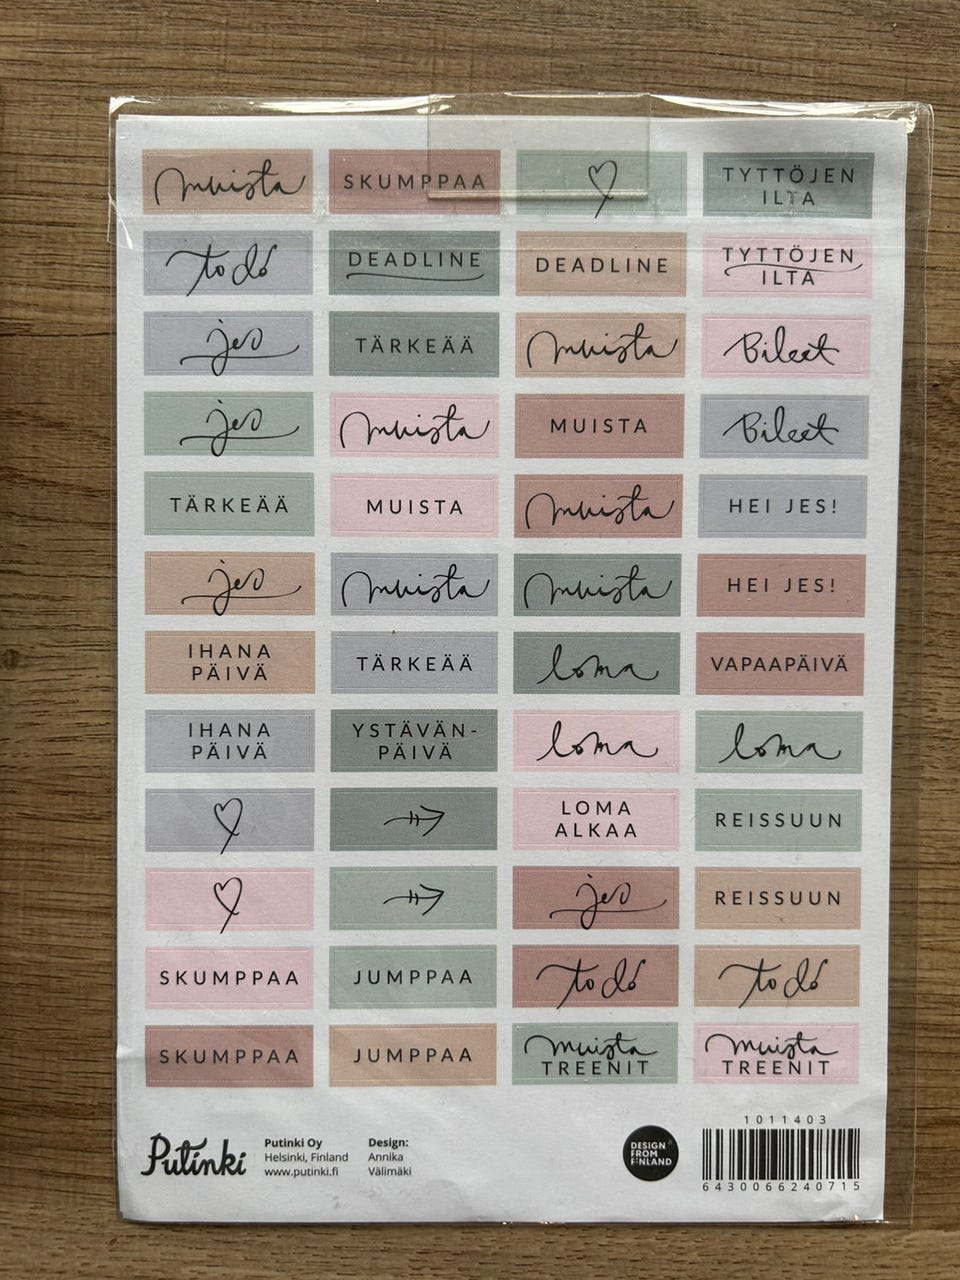 muista
SKUMPPAA
TYTTÖJEN
ILTA
to do
DEADLINE
DEADLINE
TYTTÖJEN
ILTA
jes
TÄRKEÄÄ
muista
Bileet
jes
muista
MUISTA
Bileet
TÄRKEÄÄ
MUISTA
muista
HEI JES!
jes
muista
muista
HEI JES!
IHANA
PÄIVÄ
TÄRKEÄÄ
loma
VAPAAPÄIVÄ
IHANA
PÄIVÄ
YSTÄVÄN-
PÄIVÄ
loma
loma
LOMA
ALKAA
REISSUUN
jes
REISSUUN
SKUMPPAA
JUMPPAA
to do
to do
SKUMPPAA
JUMPPAA
muista
TREENIT
muista
TREENIT
Putinki
Putinki Oy
Helsinki, Finland
www.putinki.fi
Design:
Annika
Välimäki
DESIGN
FROM
FINLAND
1011403
6430066240715